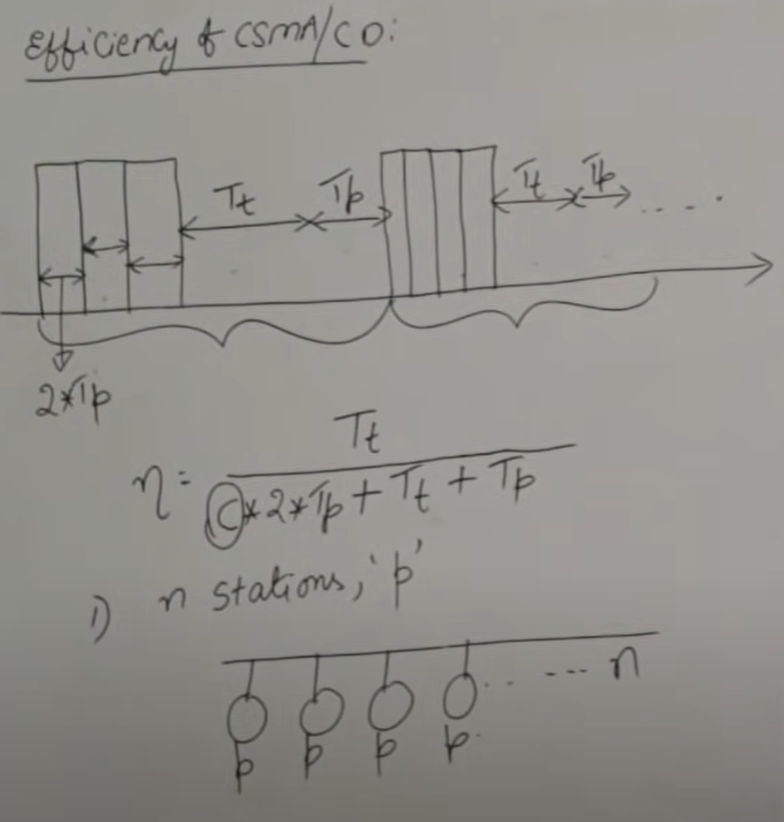 Efficiency of CSMA/CD:
Tt Tp Tt Tp ....
2*Tp
η = Tt / (C*2*Tp + Tt + Tp)
1) n stations, 'p'
..---- n
p p p p.